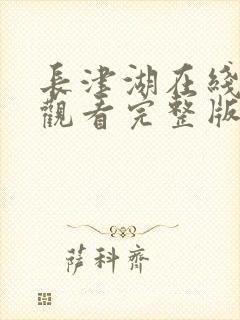 長津湖在綫
觀看完整版
薩科齊